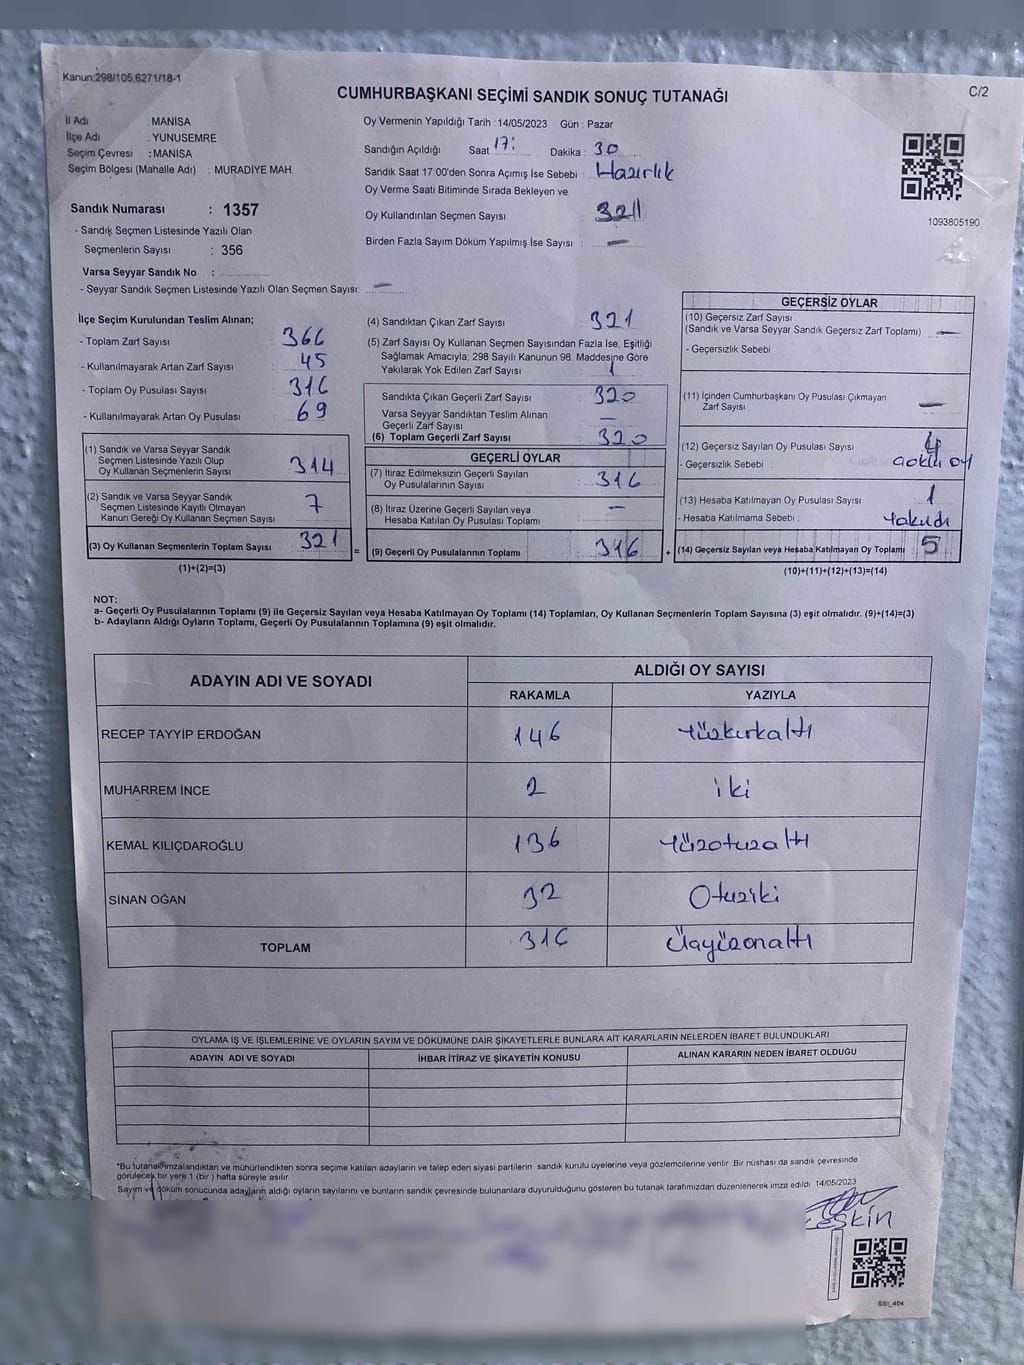 Kanun:298/105,6271/18-1
C/2
CUMHURBAŞKANI SEÇİMİ SANDIK SONUÇ TUTANAĞI
İl Adı : MANİSA
İlçe Adı : YUNUSEMRE
Seçim Çevresi : MANİSA
Seçim Bölgesi (Mahalle Adı) : MURADİYE MAH.
Sandık Numarası : 1357
- Sandık Seçmen Listesinde Yazılı Olan
Seçmenlerin Sayısı : 356
Varsa Seyyar Sandık No :
- Seyyar Sandık Seçmen Listesinde Yazılı Olan Seçmen Sayısı: —
Oy Vermenin Yapıldığı Tarih : 14/05/2023 Gün : Pazar
Sandığın Açıldığı Saat 17: Dakika : 30
Sandık Saat 17:00'den Sonra Açımış İse Sebebi : Hazırlık
Oy Verme Saati Bitiminde Sırada Bekleyen ve
Oy Kullandırılan Seçmen Sayısı :
Birden Fazla Sayım Döküm Yapılmış İse Sayısı : —
1093805190
İlçe Seçim Kurulundan Teslim Alınan;
- Toplam Zarf Sayısı : 366
- Kullanılmayarak Artan Zarf Sayısı : 45
- Toplam Oy Pusulası Sayısı :
- Kullanılmayarak Artan Oy Pusulası : 69
(1) Sandık ve Varsa Seyyar Sandık
Seçmen Listesinde Yazılı Olup
Oy Kullanan Seçmenlerin Sayısı : 314
(2) Sandık ve Varsa Seyyar Sandık
Seçmen Listesinde Kayıtlı Olmayan
Kanun Gereği Oy Kullanan Seçmen Sayısı : 7
(3) Oy Kullanan Seçmenlerin Toplam Sayısı : 321
(1)+(2)=(3)
=
(4) Sandıktan Çıkan Zarf Sayısı : 321
(5) Zarf Sayısı Oy Kullanan Seçmen Sayısından Fazla İse, Eşitliği
Sağlamak Amacıyla; 298 Sayılı Kanunun 98. Maddesine Göre
Yakılarak Yok Edilen Zarf Sayısı : 1
Sandıkta Çıkan Geçerli Zarf Sayısı : 320
Varsa Seyyar Sandıktan Teslim Alınan
Geçerli Zarf Sayısı : —
(6) Toplam Geçerli Zarf Sayısı : 320
GEÇERLİ OYLAR
(7) İtiraz Edilmeksizin Geçerli Sayılan
Oy Pusulalarının Sayısı : 316
(8) İtiraz Üzerine Geçerli Sayılan veya
Hesaba Katılan Oy Pusulası Toplamı : —
(9) Geçerli Oy Pusulalarının Toplamı : 316
+
GEÇERSİZ OYLAR
(10) Geçersiz Zarf Sayısı :
(Sandık ve Varsa Seyyar Sandık Geçersiz Zarf Toplamı) —
- Geçersizlik Sebebi :
(11) İçinden Cumhurbaşkanı Oy Pusulası Çıkmayan
Zarf Sayısı : —
(12) Geçersiz Sayılan Oy Pusulası Sayısı : 4
- Geçersizlik Sebebi :
(13) Hesaba Katılmayan Oy Pusulası Sayısı : 1
- Hesaba Katılmama Sebebi : Yakıldı
(14) Geçersiz Sayılan veya Hesaba Katılmayan Oy Toplamı : 5
(10)+(11)+(12)+(13)=(14)
NOT:
a- Geçerli Oy Pusulalarının Toplamı (9) ile Geçersiz Sayılan veya Hesaba Katılmayan Oy Toplamı (14) Toplamları, Oy Kullanan Seçmenlerin Toplam Sayısına (3) eşit olmalıdır. (9)+(14)=(3)
b- Adayların Aldığı Oyların Toplamı, Geçerli Oy Pusulalarının Toplamına (9) eşit olmalıdır.
ADAYIN ADI VE SOYADI
ALDIĞI OY SAYISI
RAKAMLA YAZIYLA
RECEP TAYYİP ERDOĞAN 146 Yüzkırkaltı
MUHARREM İNCE 2 iki
KEMAL KILIÇDAROĞLU 136 Yüzotuzaltı
SİNAN OĞAN 32 Otuziki
TOPLAM 316 Üçyüzonaltı
OYLAMA İŞ VE İŞLEMLERİNE VE OYLARIN SAYIM VE DÖKÜMÜNE DAİR ŞİKAYETLERLE BUNLARA AİT KARARLARIN NELERDEN İBARET BULUNDUKLARI
ADAYIN ADI VE SOYADI İHBAR İTİRAZ VE ŞİKAYETİN KONUSU ALINAN KARARIN NEDEN İBARET OLDUĞU
*Bu tutanak imzalandıktan ve mühürlendikten sonra seçime katılan adayların ve talep eden siyasi partilerin sandık kurulu üyelerine veya gözlemcilerine verilir. Bir nüshası da sandık çevresinde
görülecek bir yere 1 (bir ) hafta süreyle asılır
Sayım ve döküm sonucunda adayların aldığı oyların sayılarını ve bunların sandık çevresinde bulunanlara duyurulduğunu gösteren bu tutanak tarafımızdan düzenlenerek imza edildi. 14/05/2023
SSI_404